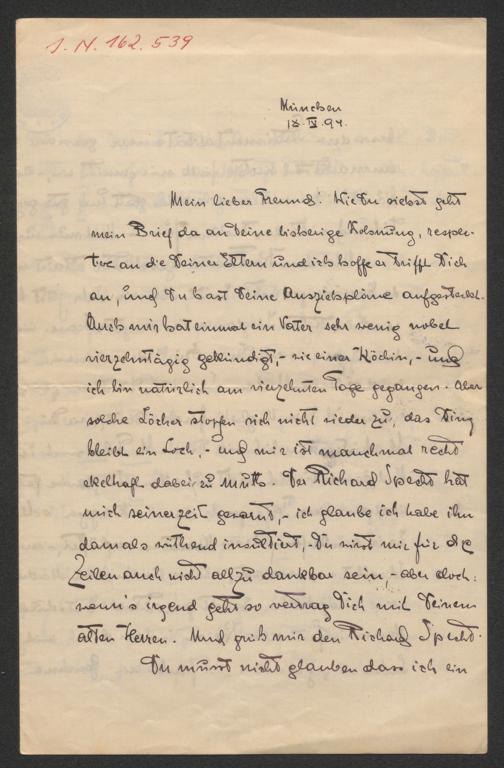 J. N. 162.539
München
18. IV. 94.
Mein lieber Freund! Wie Du siehst geht
mein Brief da an Deine bisherige Wohnung, respec-
tive an die Deiner Eltern und ich hoffe er trifft Dich
an, und Du hast Deine Auszichspläne aufgesteckt.
Auch mir hat einmal ein Vater sehr wenig nobel
vierzehntägig gekündigt, - wie einer Köchin, - und
ich bin natürlich am vierzehnten Tage gegangen. Aber
solche Löcher stopfen sich nicht wieder zu, das Ding
bleibt ein Loch, - und mir ist manchmal recht
ekelhaft dabei zu Muthe. Der Richard Specht hat
mich seinerzeit gewarnt, - ich glaube ich habe ihn
damals wüthend insultiert, - Du wirst mir für die
Zeilen auch nicht allzu dankbar sein, - aber doch:
wenn's irgend geht so vertrag Dich mit Deinem
alten Herren. Und grüß mir den Richard Specht.
Du musst nicht glauben dass ich ein